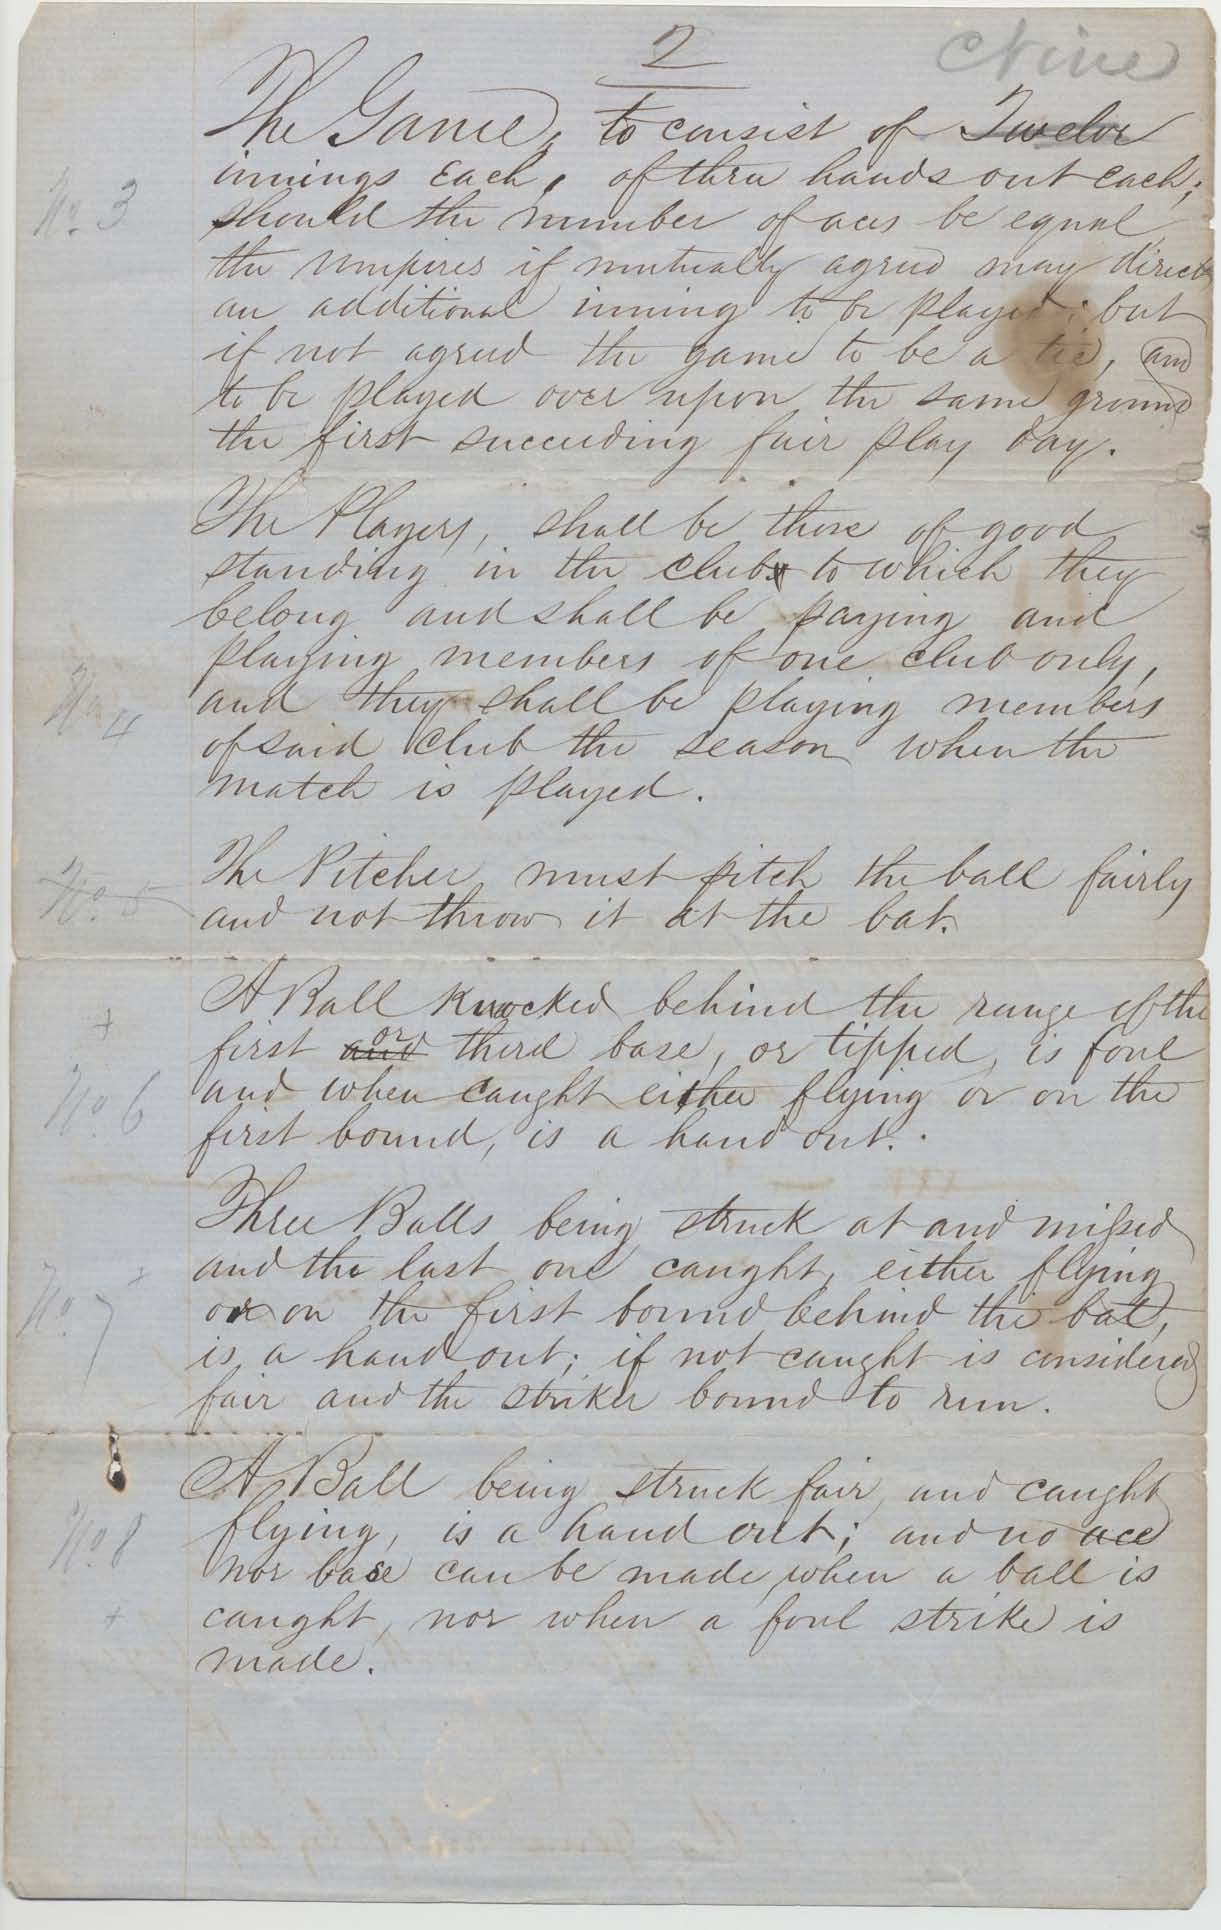 2
Nine
The Game, to consist of Twelve
innings each, of three hands out each;
No. 3
should the number of aces be equal
the umpires if mutually agreed may direct
an additional inning to be played; but
if not agreed the game to be a tie, and
to be played over upon the same ground
the first succeeding fair play day.
The Players, shall be those of good
standing in the club to which they
belong and shall be paying and
playing members of one club only,
No 4
and they shall be playing members
of said club the season when the
match is played.
The Pitcher must pitch the ball fairly
No. 5
and not throw it at the bat.
A Ball Knocked behind the range of the
+
first and or third base, or tipped, is foul
No. 6
and when caught either flying or on the
first bound, is a hand out.
Three Balls being struck at and missed
and the last one caught, either flying
+
No. 7
or on the first bound behind the bat,
is a hand out; if not caught is considered
fair and the striker bound to run.
A Ball being struck fair, and caught
No. 8
flying, is a hand out; and no ace
nor base can be made when a ball is
+
caught, nor when a foul strike is
made.